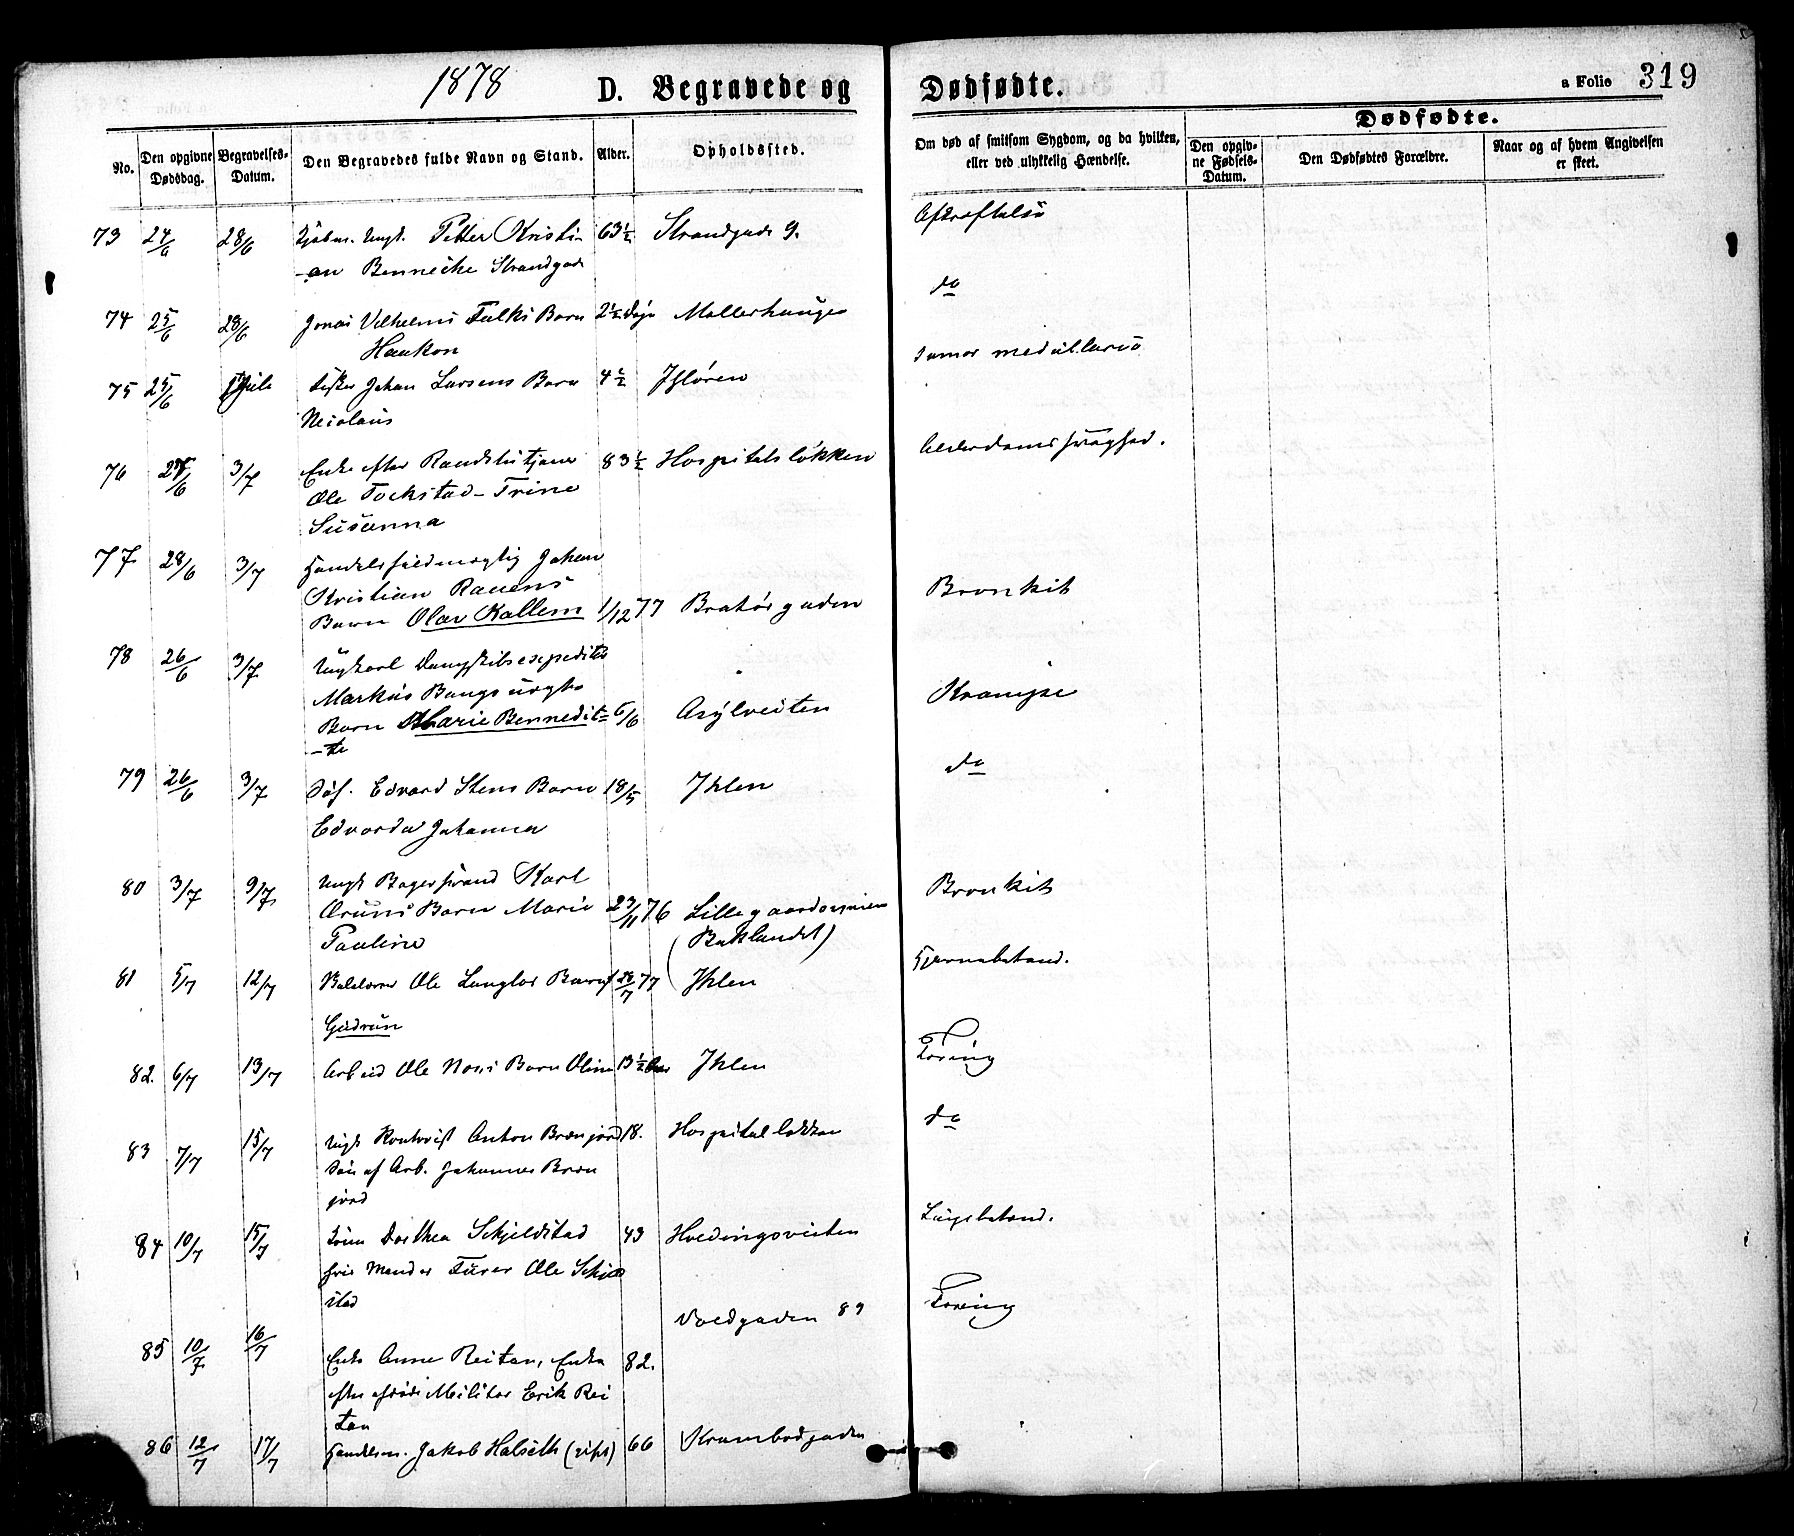 1878 D. Begravede og Dødfødte. a Folio 319
No.
Den opgivne Dødsdag.
Begravelses-Datum.
Den Begravedes fulde Navn og Stand.
Alder.
Opholdssted.
Om død af smitsom Sygdom, og da hvilken, eller ved ulykkelig Hændelse.
Dødfødte.
Den opgivne Fødsels-Datum.
Den Dødfødtes Forældre.
Naar og af hvem Angivelsen er skeet.
73 24/6 28/6 Petter Kristi- 63½ Strandgade 9. Afkræftelse
-an Bennecke Strandgade
74 25/6 28/6 Jonas Vilhelms Falks Barn 2½ Døgn Møllerhaugen do
Haakon
75 25/6 Juli Johan Larsens Barn 4½ Ihløren
Nicolaus
76 /6 3/7 Enke efter 83½ Hospitalsløkken Alderdomssvaghed.
Ole Tockstad - Trine
Susanna
77 28/6 3/7 Handelsfuldmægtig Johan
Kristian Rauens
Barn Olav Kallem 1/12 77 Bratørgaden Bronkit
78 26/6 3/7 Ungkarl Dampskibsexpeditør
Markus Bangs
Barn Marie Bennedit- 5/6 Asylveiten Krampe
-te
79 26/6 3/7 Edvard Stens Barn 18/5 Ihlen do
Edvarda Johanna
80 3/7 9/7 Ungk Bagersvend Karl
Barn Marie 23/11 76 Bronkit
Pauline (Baklandet)
81 5/7 12/7 Ole Langlos Barn 77 Ihlen Hjernebetænd.
Gudrun
82. 6/7 13/7 Arbeid Ole Barn Oline 13½ Aar Ihlen Tæring
83 7/7 15/7 Ungk Anton Brænjord 18. Hospitalløkken do
Søn af Arb. Johannes Bræn
jord
84 10/7 15/7 Dorthea Skjeldstad 43 Hvedingsveiten Lungebetænd.
Ole Skjeld
stad
85 10/7 16/7 Enke Anne Reitan, Enke 82. Voldgaden 89 Tæring
efter Militær Erik Rei
tan
86 12/7 17/7 Handelsm. Jakob Halseth (gift) 66 Krambodgaden